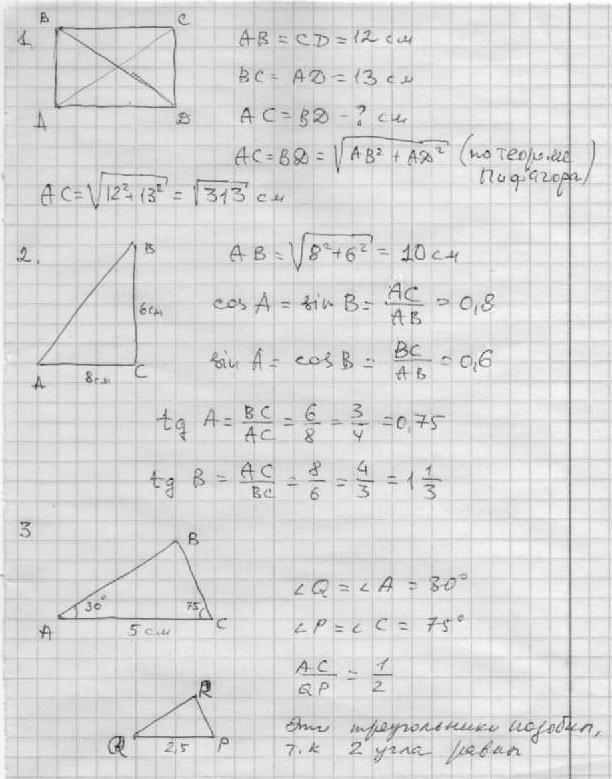 1.
B C
A D
AB = CD = 12 см
BC = AD = 13 см
AC = BD - ? см
AC = BD = √AB² + AD² (по теореме Пифагора)
AC = √12² + 13² = √313 см
2.
B
6см
A 8см C
AB = √8² + 6² = 10 см
cos A = sin B = AC/AB = 0,8
sin A = cos B = BC/AB = 0,6
tg A = BC/AC = 6/8 = 3/4 = 0,75
tg B = AC/BC = 8/6 = 4/3 = 1 1/3
3
B
30° 75
A 5 см C
∠Q = ∠A = 30°
∠P = ∠C = 75°
AC/QP = 1/2
R
Q 2,5 P
Эти треугольники подобны,
т.к 2 угла равны